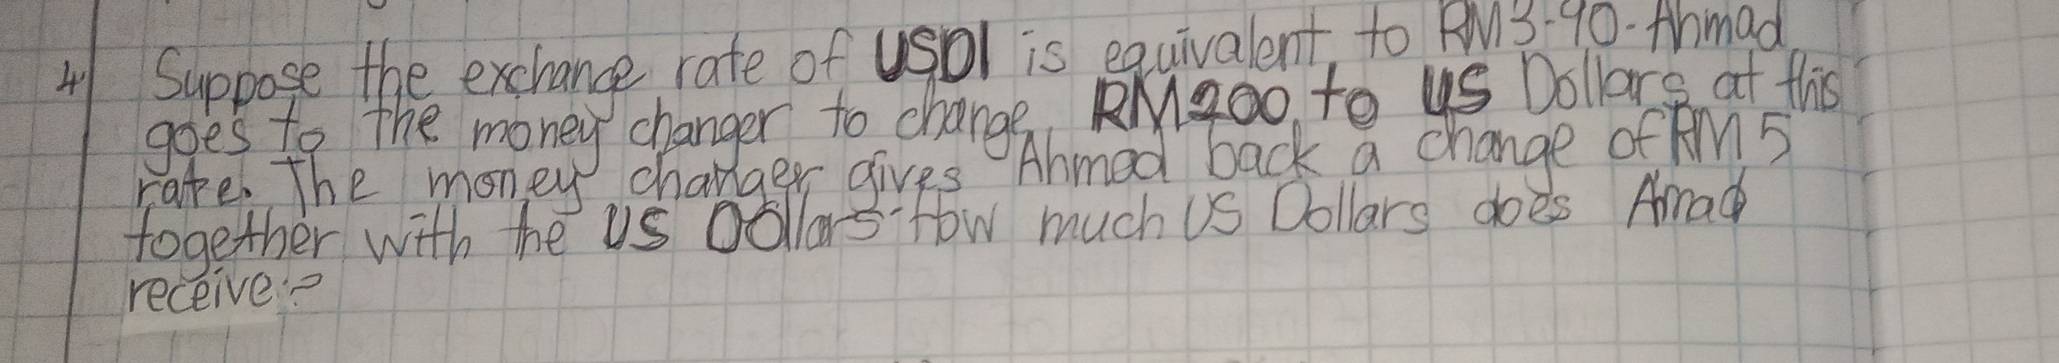 4) Suppose the exchange rate of USD1 is equivalent to RM3.90. Ahmad
goes to the money changer to change RM200 to US Dollars at this
rate. The money changer gives Ahmad back a change of RM5
together with the US Dollars. How much US Dollars does Amad
receive?